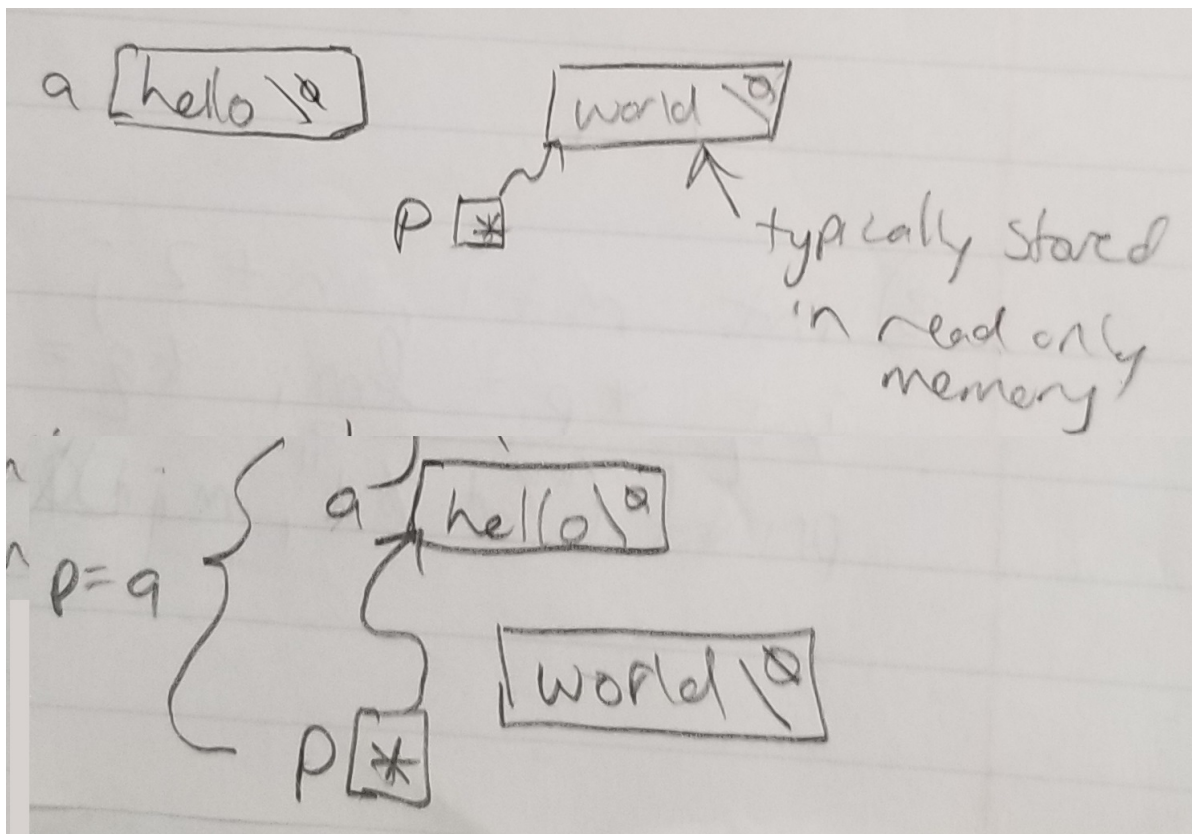 a hello \0
world \0
p *
typically stored
in read only
memory
a hello \0
p = a
world \0
p *